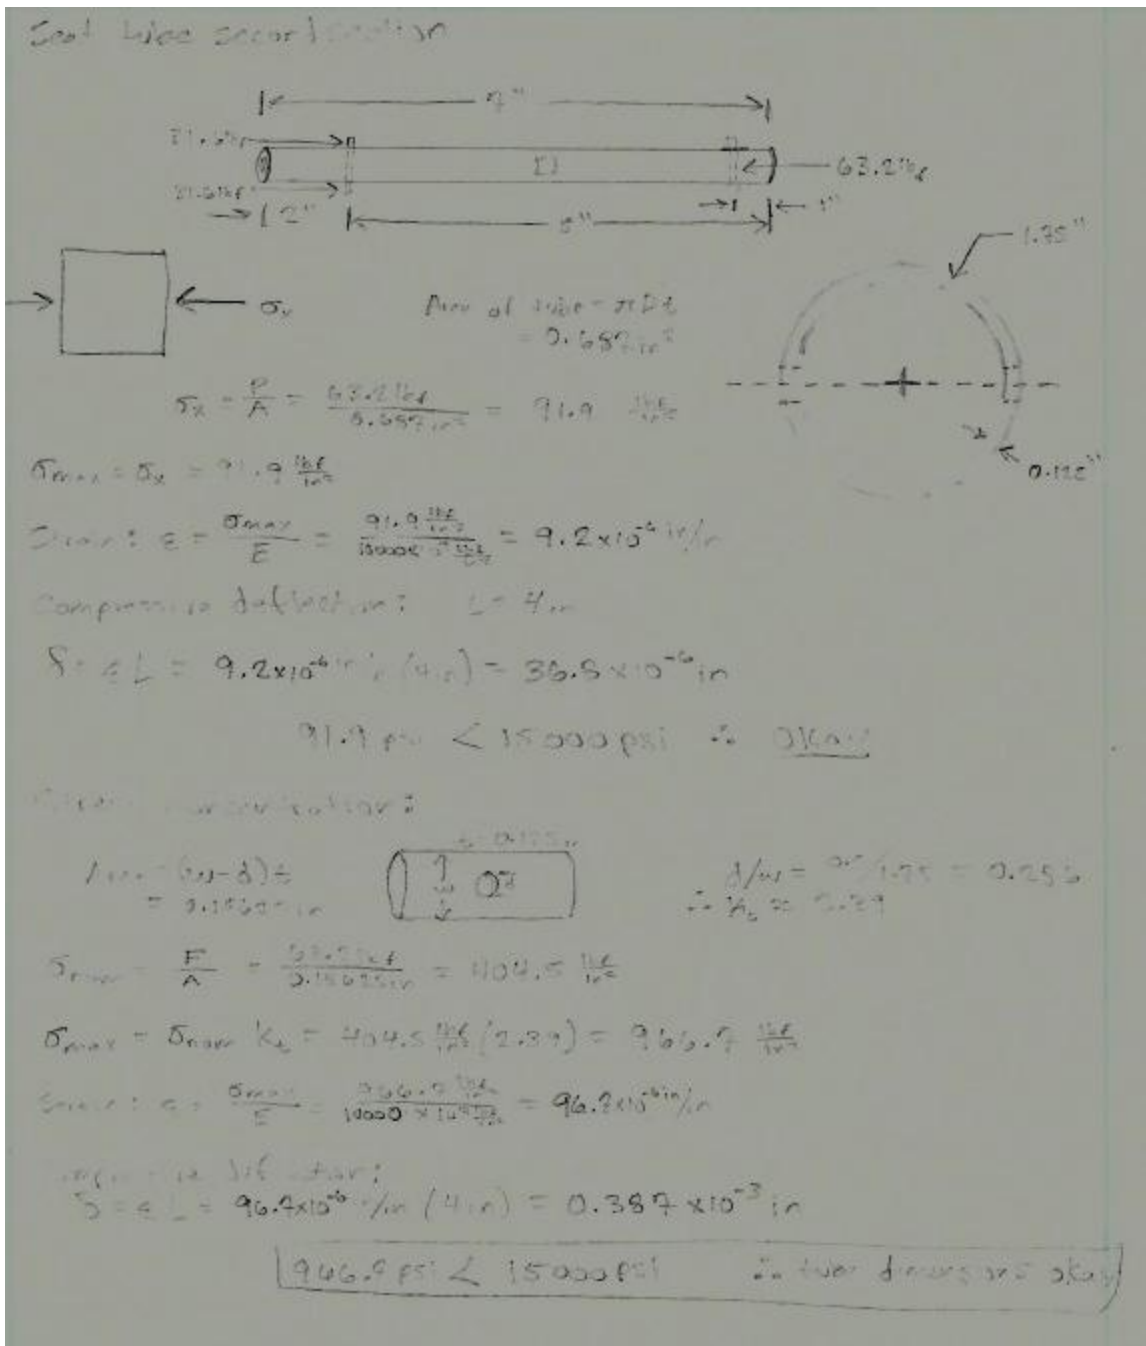 Seat tube second section
7"
31.6lbf
31.6lbf
D
63.2lbf
2"
5"
1"
1.75"
σx
Area of tube = πDt
= 0.687in²
σx = P/A = 63.2lbf/0.687in² = 91.9 lbf/in²
0.125"
σmax = σx = 91.9 lbf/in²
Strain: ε = σmax/E = 91.9 lbf/in² / = 9.2x10⁻⁶ in/in
Compressive deflection: L = 4in
δ = εL = 9.2x10⁻⁶ in/in (4in) = 36.8x10⁻⁶ in
91.9 psi < 15000psi ∴ Okay
Stress concentration:
t=0.125in
Area = (w-d)t
= 0.15625in
w
d
d/w = /1.75 = 0.286
∴ Kt ≈ 2.39
σnom = F/A = 63.2lbf/0.15625in = 404.5 lbf/in²
σmax = σnom Kt = 404.5 lbf/in² (2.39) = 966.7 lbf/in²
Strain: ε = σmax/E = 966.7 lbf/in² / = 96.7x10⁻⁶ in/in
Compressive deflection:
δ = εL = 96.7x10⁻⁶ in/in (4in) = 0.387 x10⁻³ in
psi < 15000psi ∴ dimensions okay